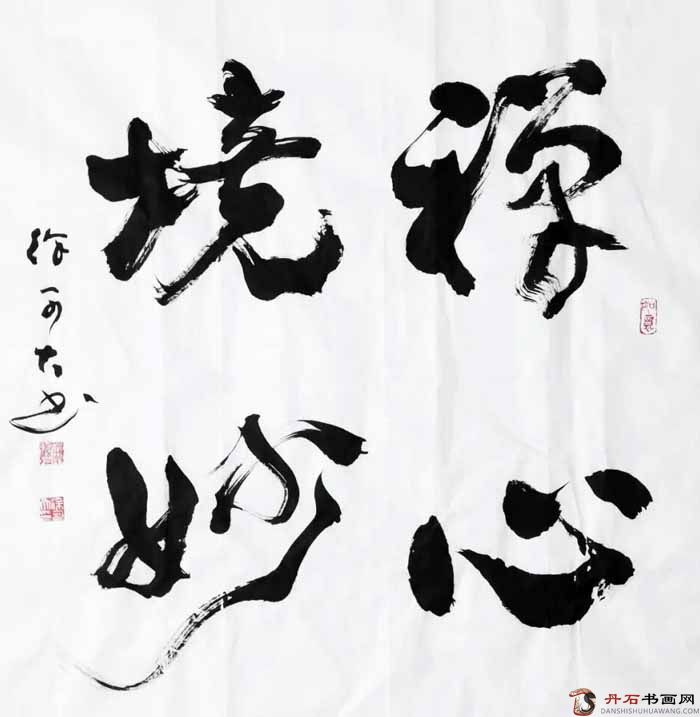 禅心
境妙
徐可大书
如意
丹石书画网
DANSHISHUHUAWANG.COM